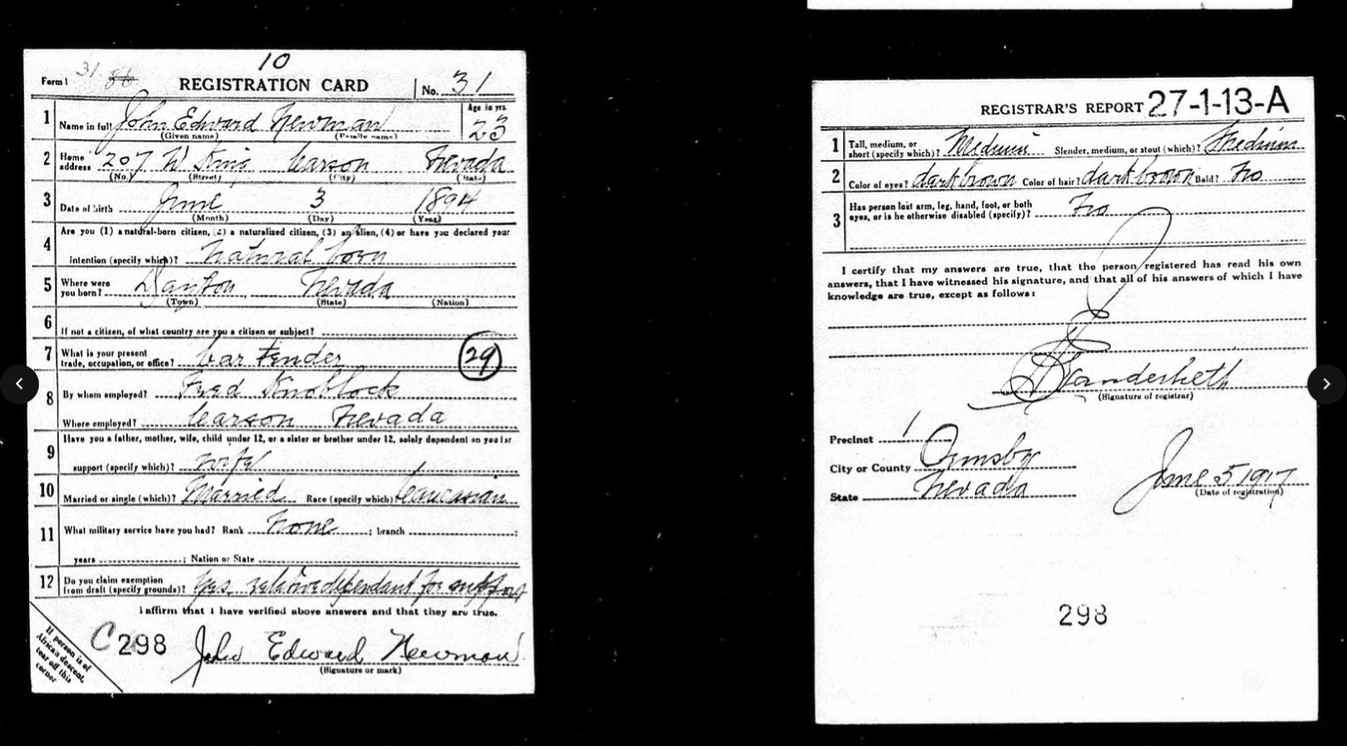 10
Form 1 31 REGISTRATION CARD No. 31
1 Name in full John Edward Newman Age in yrs. 23
(Given name) (Family name)
2 Home address 207 W King Carson Nevada
(No.) (Street) (City) (State)
3 Date of birth June 3 1894
(Month) (Day) (Year)
4 Are you (1) a natural-born citizen, (2) a naturalized citizen, (3) an alien, (4) or have you declared your
intention (specify which)? natural born
5 Where were you born? Dayton Nevada
(Town) (State) (Nation)
6 If not a citizen, of what country are you a citizen or subject?
7 What is your present trade, occupation, or office? bar tender 29
8 By whom employed? Fred Knoblock
Where employed? Carson Nevada
9 Have you a father, mother, wife, child under 12, or a sister or brother under 12, solely dependent on you for
support (specify which)? wife
10 Married or single (which)? Married Race (specify which)? Caucasian
11 What military service have you had? Rank none ; branch ;
years ; Nation or State
12 Do you claim exemption from draft (specify grounds)? Yes, relative dependant for support
I affirm that I have verified above answers and that they are true.
C298 John Edward Newman
(Signature or mark)
If person is of
African descent,
tear off this
corner
REGISTRAR'S REPORT 27-1-13-A
1 Tall, medium, or short (specify which)? Medium Slender, medium, or stout (which)? Medium
2 Color of eyes? dark brown Color of hair? dark brown Bald? No
3 Has person lost arm, leg, hand, foot, or both
eyes, or is he otherwise disabled (specify)? No
I certify that my answers are true, that the person registered has read his own
answers, that I have witnessed his signature, and that all of his answers of which I have
knowledge are true, except as follows:
Vanderlieth
(Signature of registrar)
Precinct 1
City or County Ormsby
State Nevada
June 5 1917
(Date of registration)
298